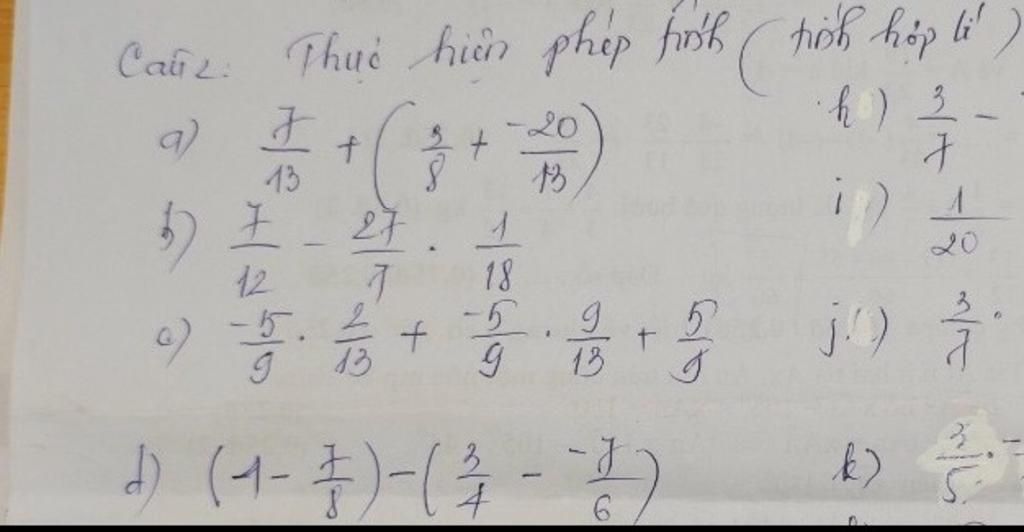 Câu 2: Thực hiện phép tính (tính hợp lí)
a) 7/13 + (3/8 + -20/13)
b) 7/12 - 27/7 . 1/18
c) -5/9 . 2/13 + -5/9 . 9/13 + 5/9
d) (4 - 7/8) - (3/4 - -7/6)
h) 3/7 -
i) 1/20
j) 3/7 .
k) 3/5 . -